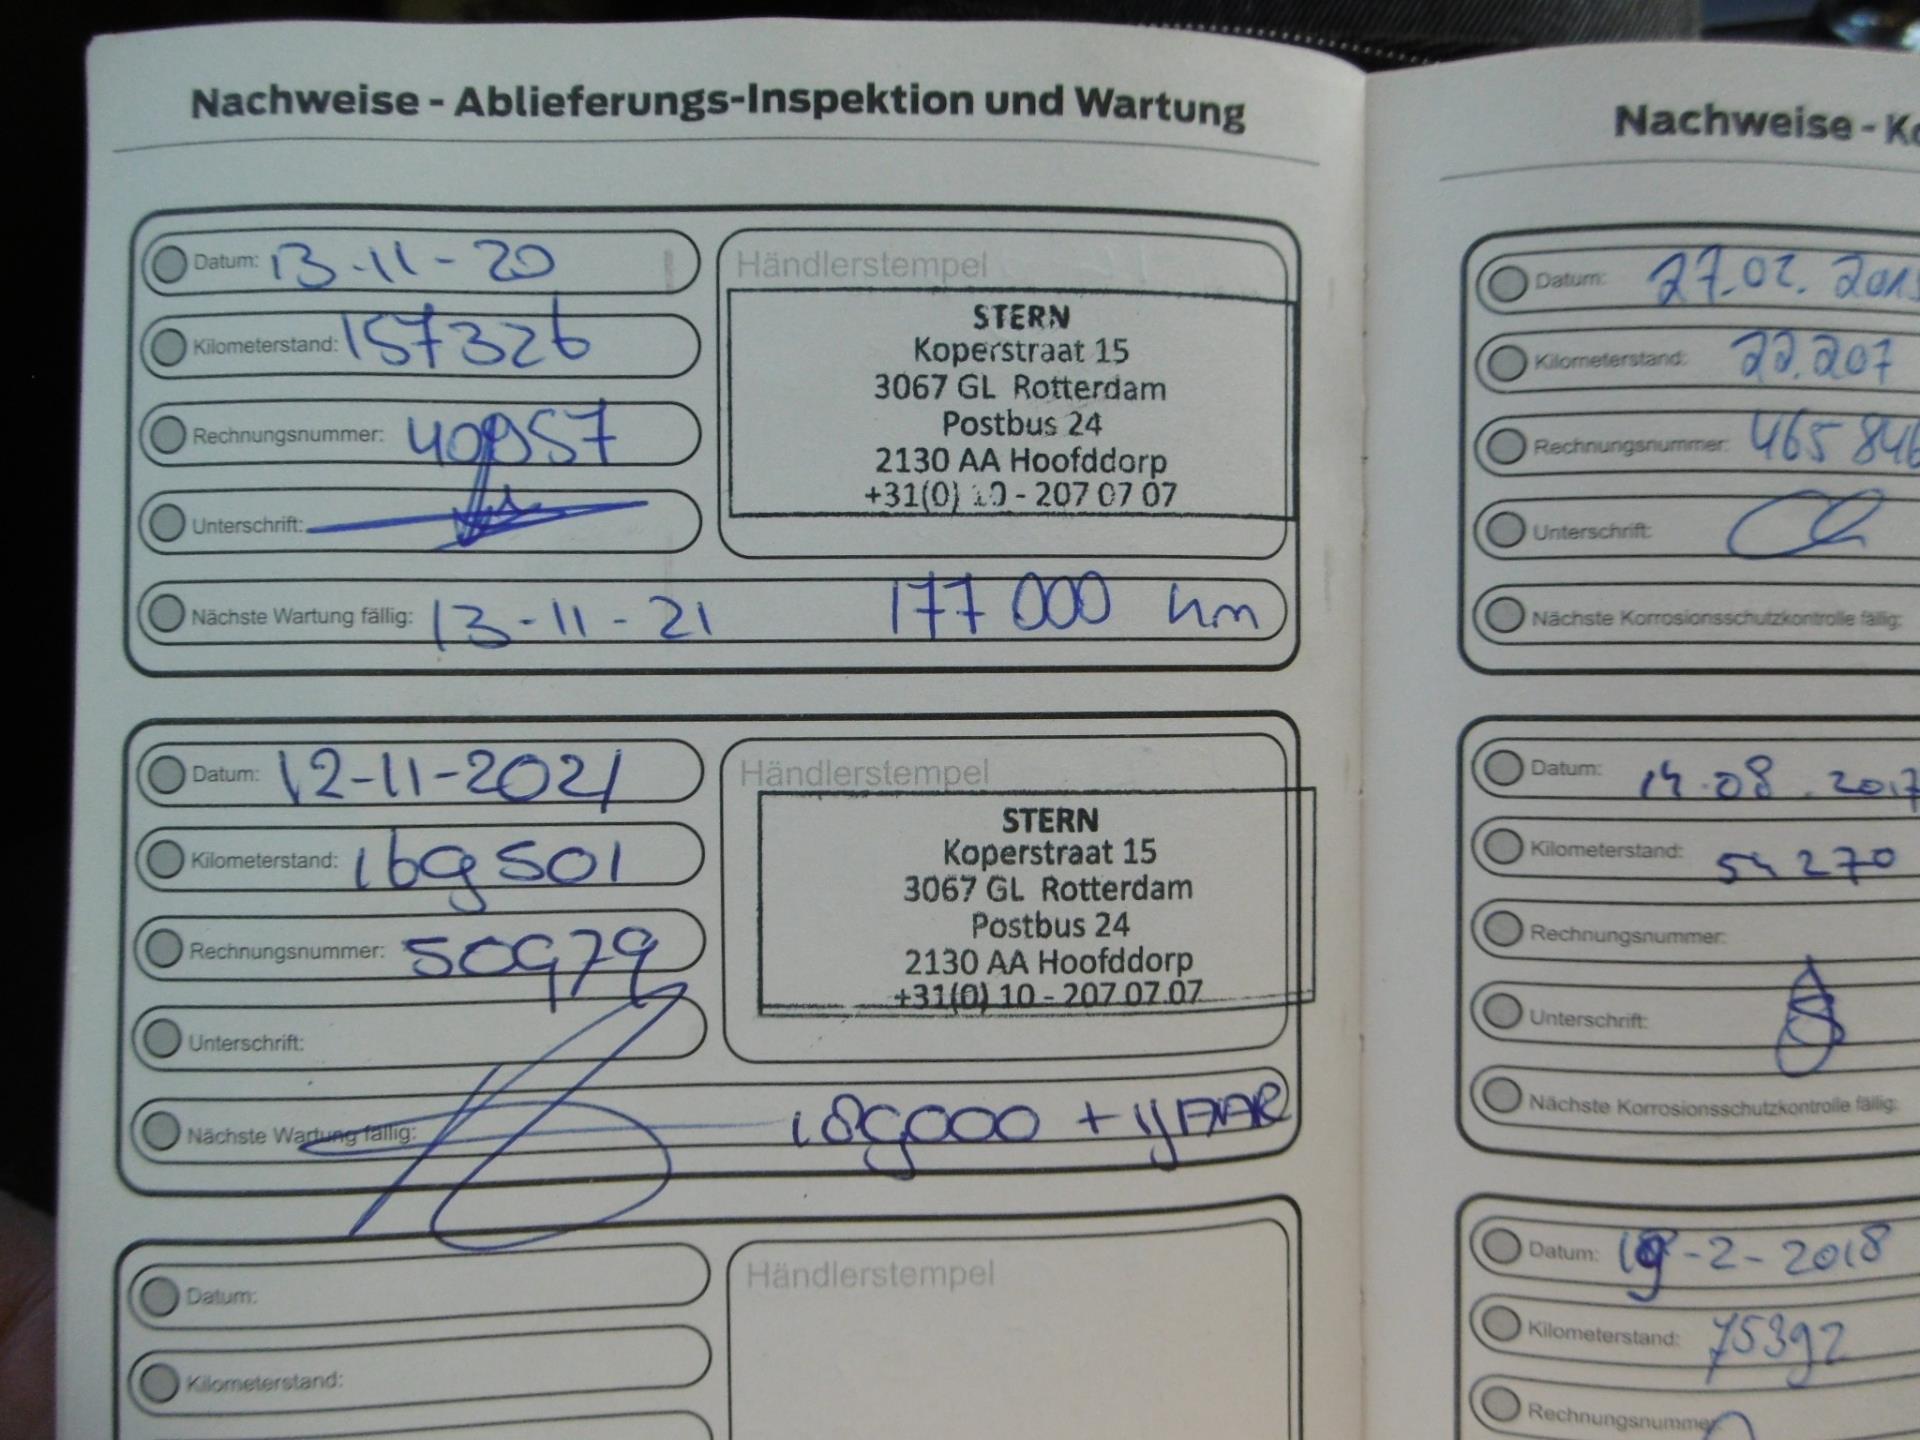 Nachweise - Ablieferungs-Inspektion und Wartung
Datum: 13-11-20
Kilometerstand: 157326
Rechnungsnummer: 40957
Unterschrift:
Nächste Wartung fällig: 13-11-21 177 000 km
Händlerstempel
STERN
Koperstraat 15
3067 GL Rotterdam
Postbus 24
2130 AA Hoofddorp
+31(0) 10 - 207 07 07
Datum: 12-11-2021
Kilometerstand: 169501
Rechnungsnummer: 50979
Unterschrift:
Nächste Wartung fällig: 189000 + 1JAAR
Händlerstempel
STERN
Koperstraat 15
3067 GL Rotterdam
Postbus 24
2130 AA Hoofddorp
+31(0) 10 - 207 07 07
Datum:
Kilometerstand:
Händlerstempel
Nachweise -
Datum: 27.02.
Kilometerstand: 22.207
Rechnungsnummer: 465 846
Unterschrift:
Nächste Korrosionsschutzkontrolle fällig:
Datum: 14.08.2017
Kilometerstand: 54270
Rechnungsnummer:
Unterschrift:
Nächste Korrosionsschutzkontrolle fällig:
Datum: 19-2-2018
Kilometerstand: 75392
Rechnungsnummer